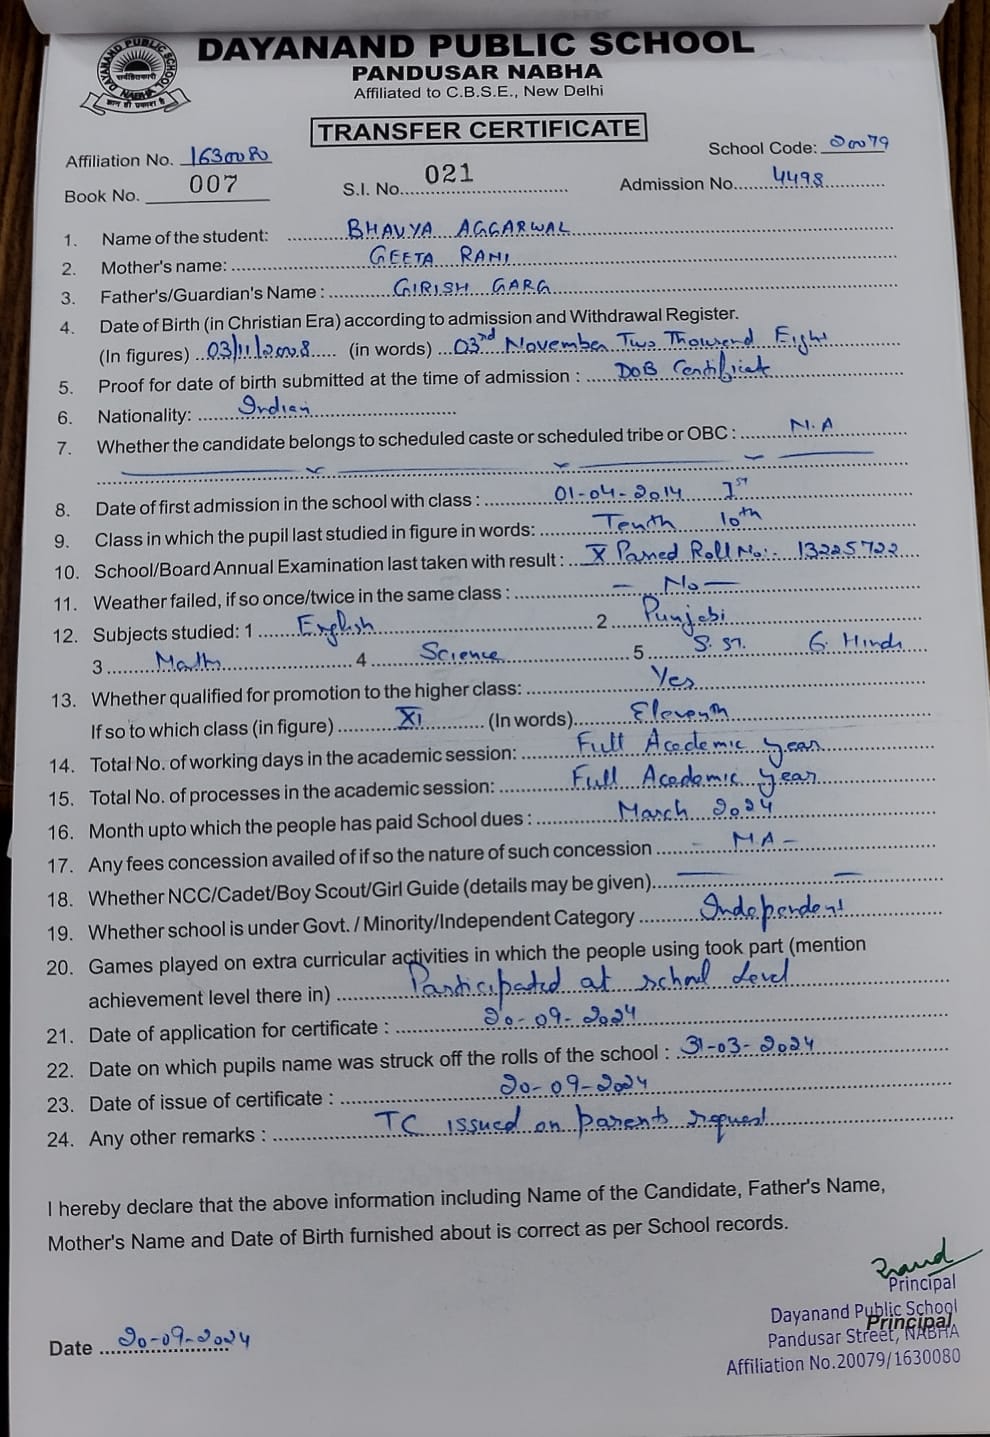 DAYANAND PUBLIC SCHOOL NABHA
ज्ञान ही प्रकाश है
DAYANAND PUBLIC SCHOOL
PANDUSAR NABHA
Affiliated to C.B.S.E., New Delhi
TRANSFER CERTIFICATE
Affiliation No. 1630080 School Code: 20079
Book No. 007 S.I. No. 021 Admission No. 4498
1. Name of the student: BHAVYA AGGARWAL
2. Mother's name: GEETA RANI
3. Father's/Guardian's Name : GIRISH GARG
4. Date of Birth (in Christian Era) according to admission and Withdrawal Register.
(In figures) 03/11/2008 (in words) 03rd November Two Thousand Eight
5. Proof for date of birth submitted at the time of admission : DoB Certificate
6. Nationality: Indian
7. Whether the candidate belongs to scheduled caste or scheduled tribe or OBC : N.A
8. Date of first admission in the school with class : 01-04-2014 Ist
9. Class in which the pupil last studied in figure in words: Tenth 10th
10. School/Board Annual Examination last taken with result : X Passed Roll No:- 13225722
11. Weather failed, if so once/twice in the same class : — No —
12. Subjects studied: 1 English 2 Punjabi
3 Math 4 Science 5 S.St. 6. Hindi
13. Whether qualified for promotion to the higher class: Yes
If so to which class (in figure) XI (In words) Eleventh
14. Total No. of working days in the academic session: Full Academic year
15. Total No. of processes in the academic session: Full Academic year
16. Month upto which the people has paid School dues : March 2024
17. Any fees concession availed of if so the nature of such concession - NA -
18. Whether NCC/Cadet/Boy Scout/Girl Guide (details may be given) — —
19. Whether school is under Govt. / Minority/Independent Category Independent
20. Games played on extra curricular activities in which the people using took part (mention
achievement level there in) Participated at school level
21. Date of application for certificate : 20-09-2024
22. Date on which pupils name was struck off the rolls of the school : 31-03-2024
23. Date of issue of certificate : 20-09-2024
24. Any other remarks : TC issued on parents request
I hereby declare that the above information including Name of the Candidate, Father's Name,
Mother's Name and Date of Birth furnished about is correct as per School records.
Principal
Dayanand Public School
Principal
Pandusar Street, NABHA
Affiliation No.20079/1630080
Date 20-09-2024